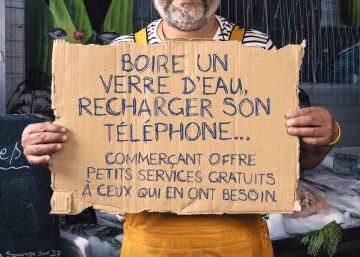 BOIRE UN
VERRE D'EAU,
RECHARGER SON
TÉLÉPHONE...
COMMERÇANT OFFRE
PETITS SERVICES GRATUITS
À CEUX QUI EN ONT BESOIN.